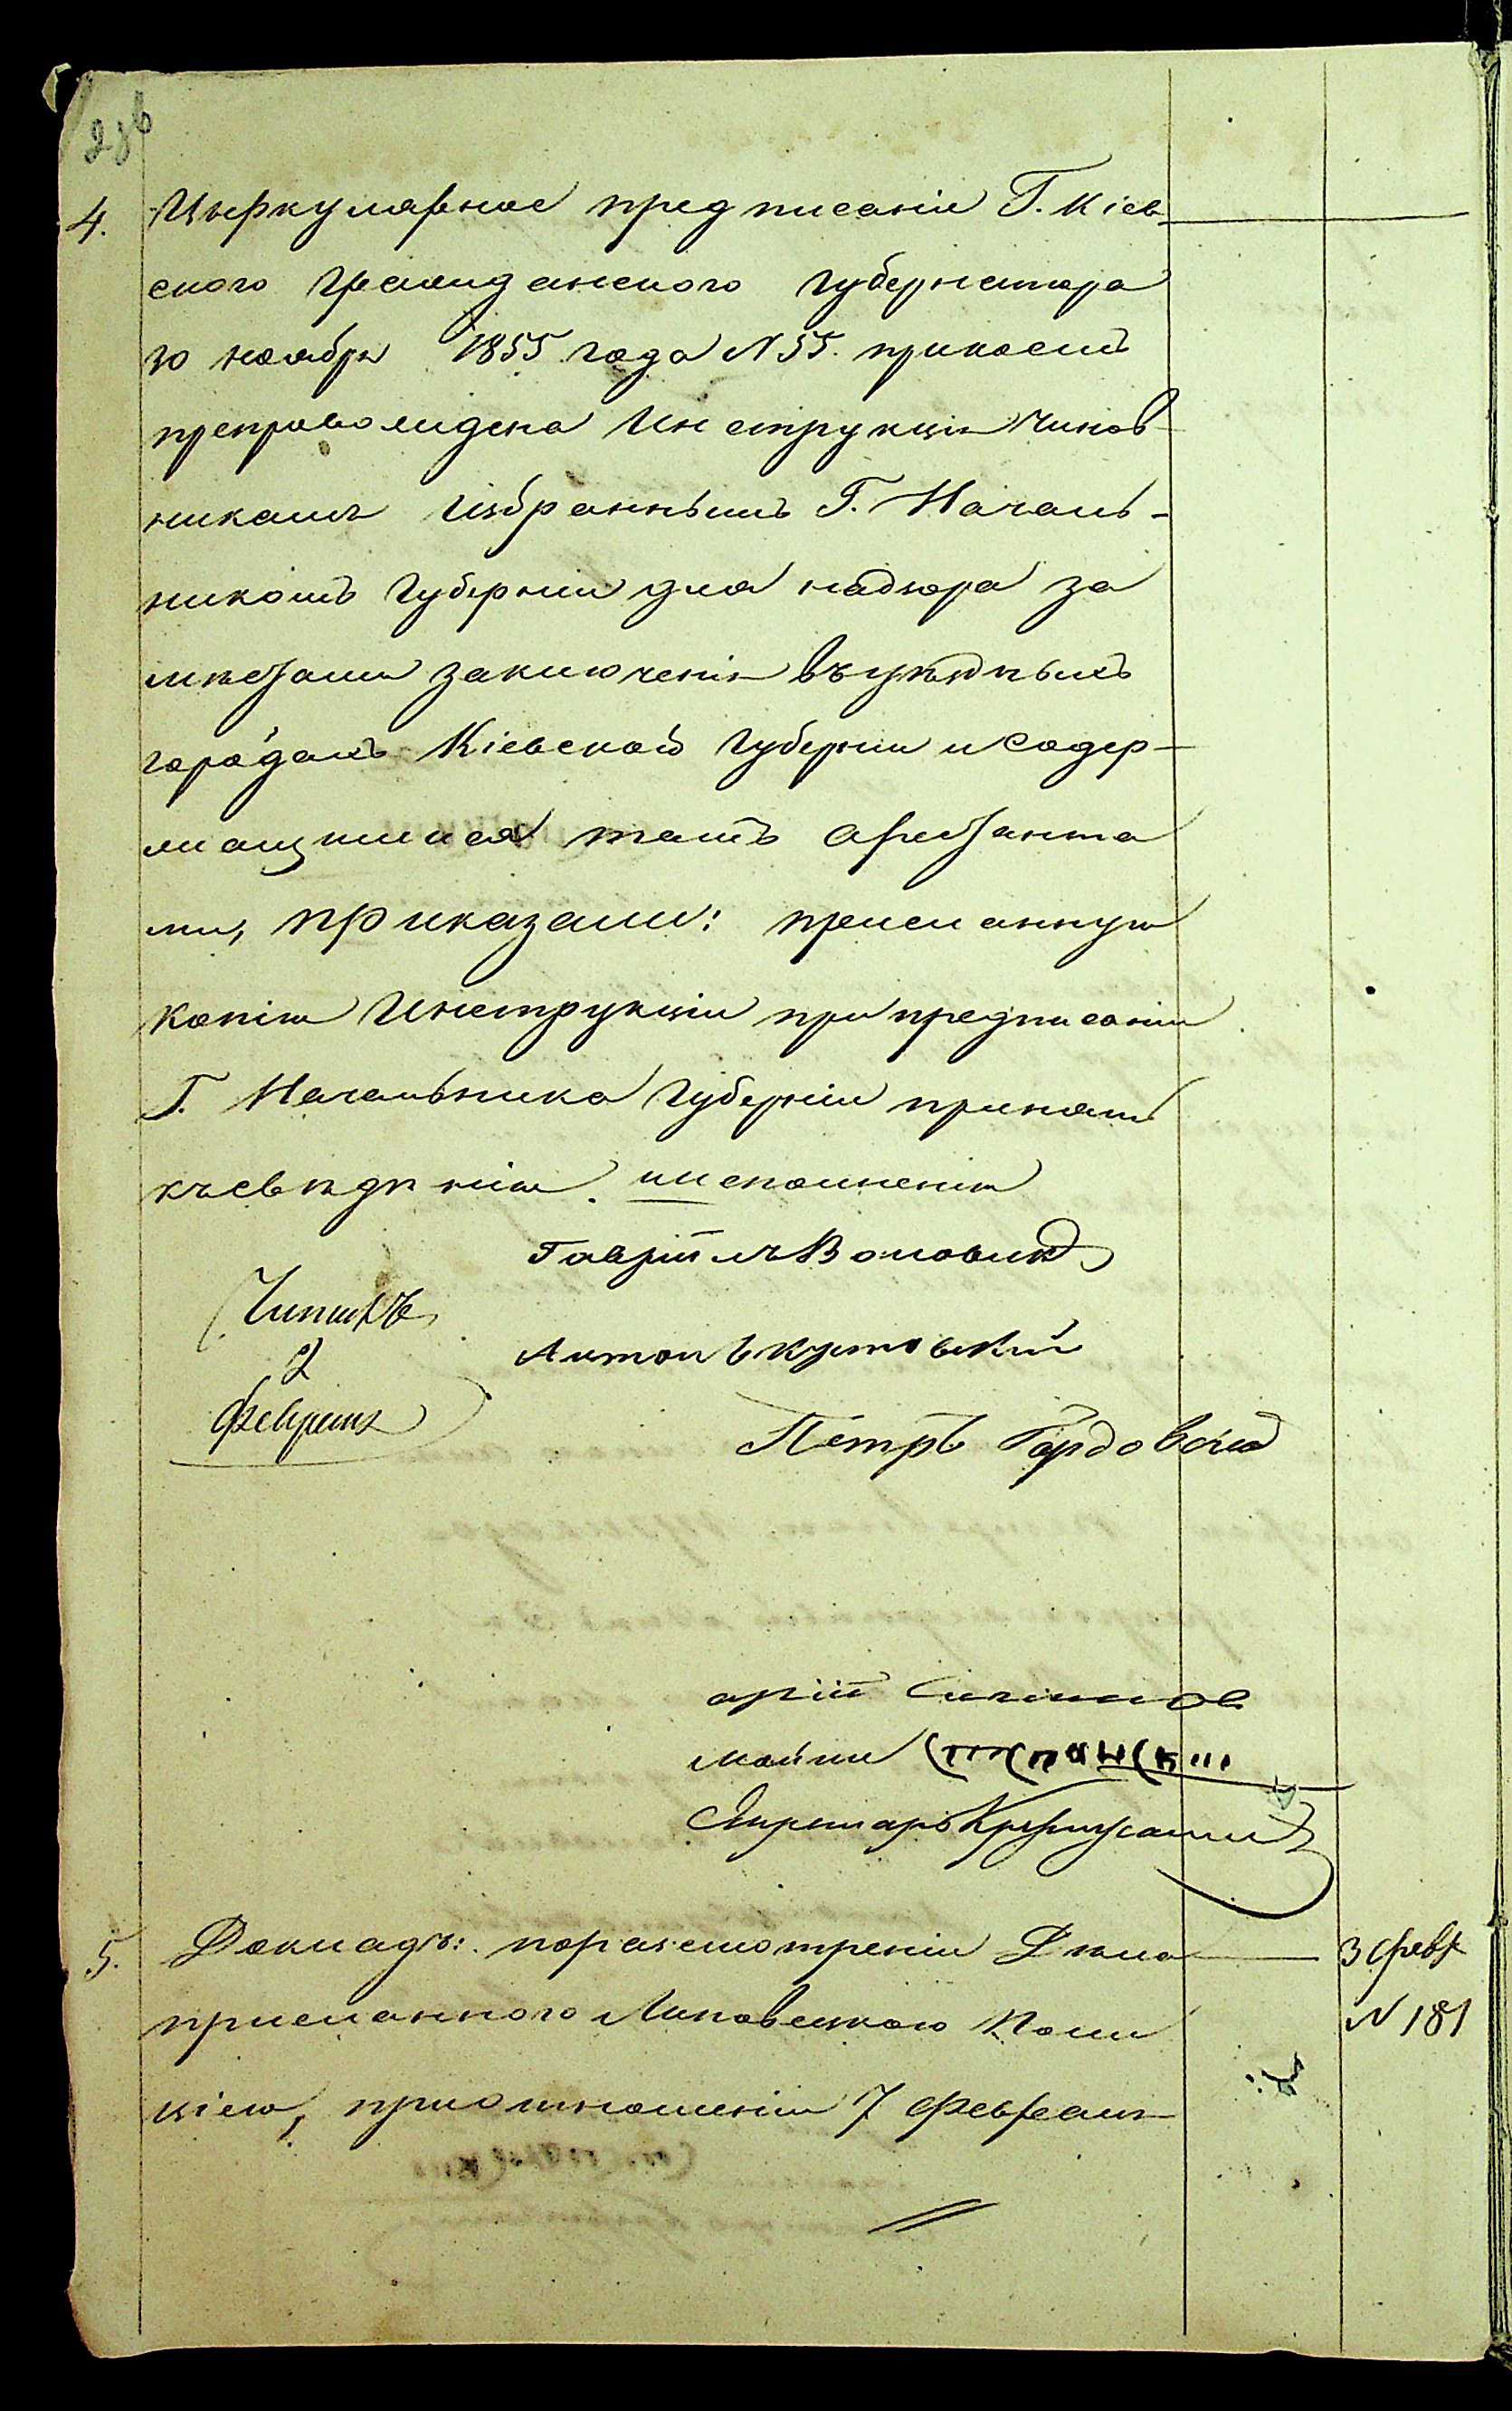 4. Циркулярное предписаніе Г. Кіев
ского Гражданского Губернатора
30 ноября 1855 года N 55. при коемъ
препровождена Инструкція чинов
никамъ избраннымъ Г. Началь-
никомъ Губерніи для надзора за
мѣстами заключенія въ уѣздныхъ
городахъ Кіевской Губерніи и содер-
жащимися тамъ арестанта
ми, приказали: присланную
копію Инструкціи при предписаніи
Г. Начальника Губерніи принять
къ свѣдѣнію. и исполненію
Гавріилъ Воловик
Антонъ Кутовскій
2
Февраля
Петръ Гордовой
Секретарь
5. Докладъ: по разсмотреніи Дѣла
3 февр
присланного Липовецкою Поли
N 181
ціею, при отношеніи 7 февраля